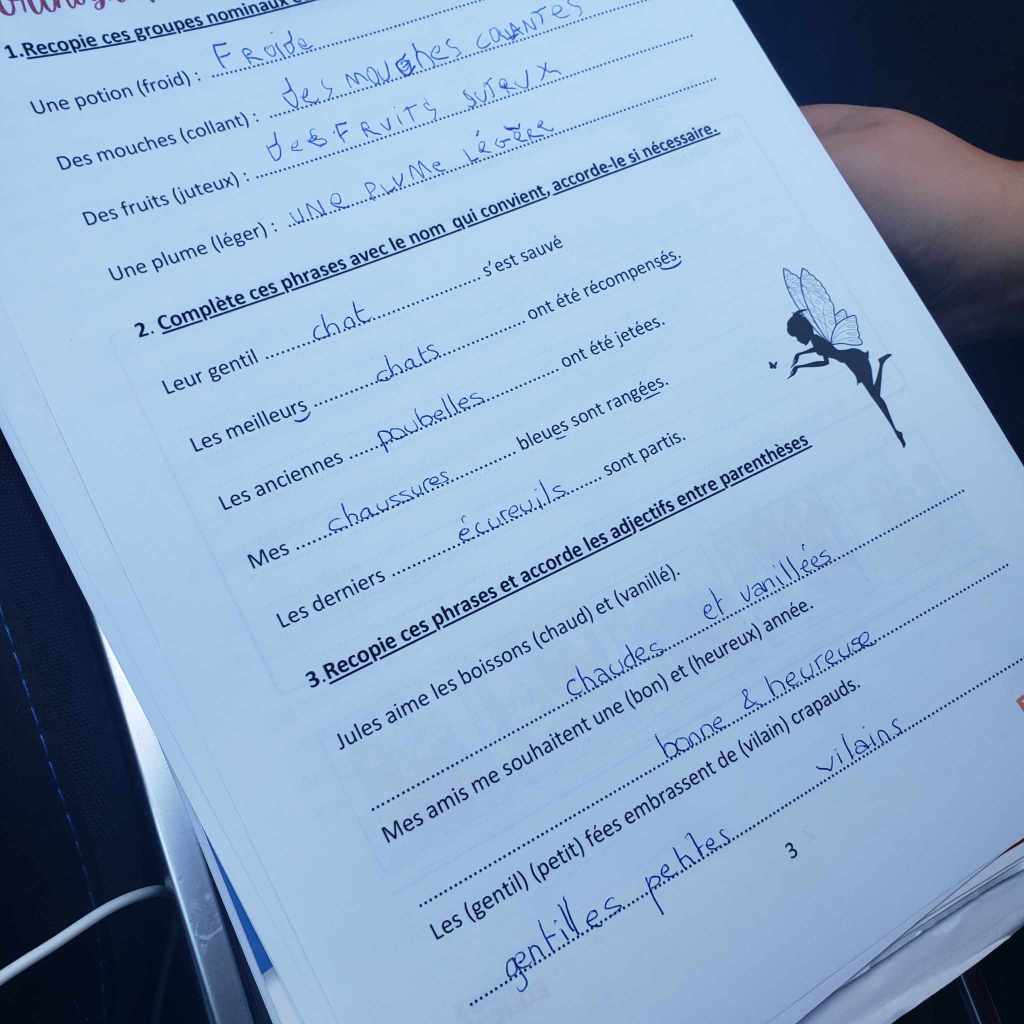 1.Recopie ces groupes nominaux
Une potion (froid) : FRoide
Des mouches (collant) : des mouches coLANTES
Des fruits (juteux) : des FRUITS JUTEUX
Une plume (léger) : UNe PLUMe LégèRe
2. Complète ces phrases avec le nom qui convient, accorde-le si nécessaire.
Leur gentil chat s'est sauvé
Les meilleurs chats ont été récompensés.
Les anciennes poubelles ont été jetées.
Mes chaussures bleues sont rangées.
Les derniers écureuils sont partis.
3.Recopie ces phrases et accorde les adjectifs entre parenthèses
Jules aime les boissons (chaud) et (vanillé).
chaudes et vanillées
Mes amis me souhaitent une (bon) et (heureux) année.
bonne & heureuse
Les (gentil) (petit) fées embrassent de (vilain) crapauds.
gentilles petites vilains
3